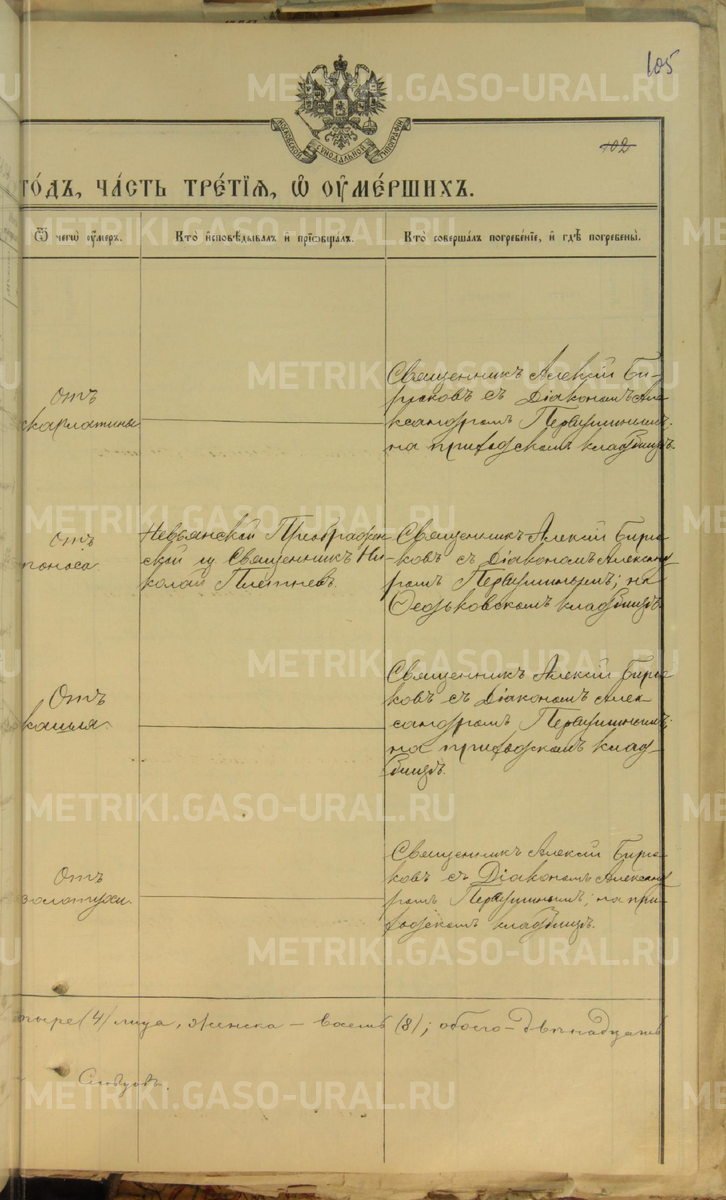 105
102
МОСКОВСКОЙ СѴНОДАЛЬНОЙ ТИПОГРАФІИ
го́дъ, ча́сть тре́тїѧ, ѡ҆ ᲂу҆ме́ршихъ.
Ѿ чегѡ̀ ᲂу҆́меръ.
Кто̀ и҆сповѣ́дывалъ и҆ прїѡбща́лъ.
Кто̀ соверша́лъ погребе́нїе, и҆ гдѣ̀ погребены̀.
отъ
скарлатины
Священникъ Алексій Би-
рюковъ съ Діакономъ Але
ксандромъ Первушинымъ.
на приходскомъ кладбищѣ.
отъ
поноса
Невьянской Преображен
ской ц. Священникъ Ни-
колай Плетневъ.
Священникъ Алексій Бирю
ковъ съ Діакономъ Александ
ромъ Первушинымъ; на
Федьковскомъ кладбищѣ.
Отъ
кашля
Священникъ Алексій Бирю
ковъ съ Діакономъ Алек
сандромъ Первушинымъ;
на приходскомъ клад-
бищѣ.
Отъ
золотухи.
Священникъ Алексій Бирю
ковъ съ Діакономъ Александ
ромъ Первушинымъ; на при-
ходскомъ кладбищѣ.
тыре (4) лица, женска – восемь (8); обоего – двѣнадцать
METRIKI.GASO-URAL.RU